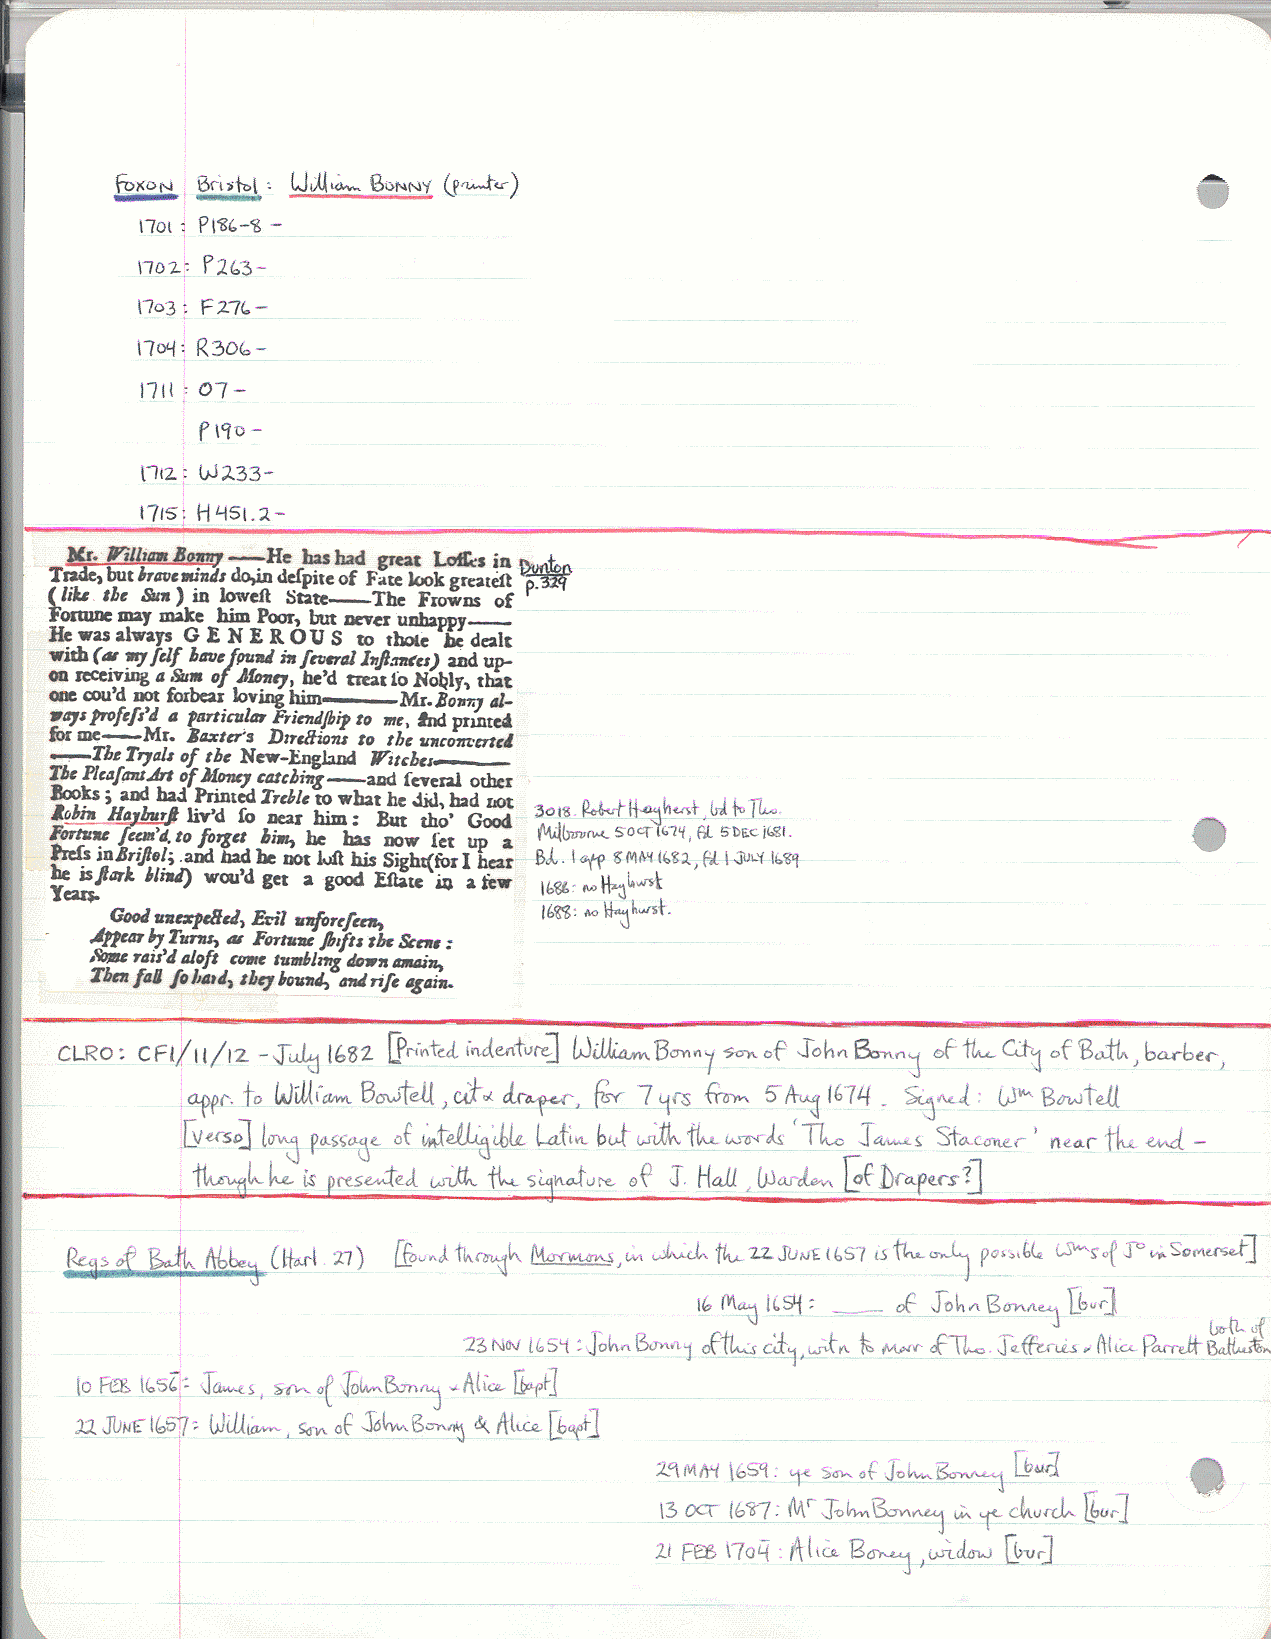 FOXON Bristol: William BONNY (printer)
1701: P186-8 -
1702: P263-
1703: F276-
1704: R306-
1711: O7-
P190-
1712: W233-
1715: H451.2-
Mr. William Bonny——He has had great Loſſes in
Trade, but brave minds do, in deſpite of Fate look greateſt
(like the Sun) in loweſt State——The Frowns of
Fortune may make him Poor, but never unhappy——
He was always GENEROUS to thoſe he dealt
with (as my ſelf have found in ſeveral Inſtances) and up-
on receiving a Sum of Money, he'd treat ſo Nobly, that
one cou'd not forbear loving him——Mr. Bonny al-
ways profeſs'd a particular Friendſhip to me, and printed
for me——Mr. Baxter's Directions to the unconverted
——The Tryals of the New-England Witches——
The Pleaſant Art of Money catching——and ſeveral other
Books; and had Printed Treble to what he did, had not
Robin Hayhurſt liv'd ſo near him: But tho' Good
Fortune ſeem'd to forget him, he has now ſet up a
Preſs in Briſtol; and had he not loſt his Sight (for I hear
he is ſtark blind) wou'd get a good Eſtate in a few
Years.
Good unexpected, Evil unforeſeen,
Appear by Turns, as Fortune ſhifts the Scene:
Some rais'd aloft come tumbling down amain,
Then fall ſo hard, they bound, and riſe again.
Dunton
p.329
3018. Robert Hayherst, bd to Tho.
Milbourne 5 OCT 1674, fd 5 DEC 1681.
Bd. 1 app 8 MAY 1682, fd 1 JULY 1689
1686: no Hayhurst
1688: no Hayhurst.
CLRO: CF1/11/12 - July 1682 [Printed indenture] William Bonny son of John Bonny of the City of Bath, barber,
appr. to William Bowtell, cit & draper, for 7 yrs from 5 Aug 1674. Signed: Wm Bowtell
[Verso] long passage of intelligible Latin but with the words 'Tho James Staconer' near the end -
though he is presented with the signature of J. Hall, Warden [of Drapers?]
Regs of Bath Abbey (Harl. 27) [found through Mormons, in which the 22 JUNE 1657 is the only possible Wms of Jo in Somerset]
16 May 1654: ___ of John Bonney [bur]
23 NOV 1654: John Bonny of this city, witn to marr of Tho. Jefferies & Alice Parrett both of Batheston
10 FEB 1656: James, son of John Bonny & Alice [bapt]
22 JUNE 1657: William, son of John Bonny & Alice [bapt]
29 MAY 1659: ye son of John Bonney [bur]
13 OCT 1687: Mr John Bonney in ye church [bur]
21 FEB 1704: Alice Boney, widow [bur]